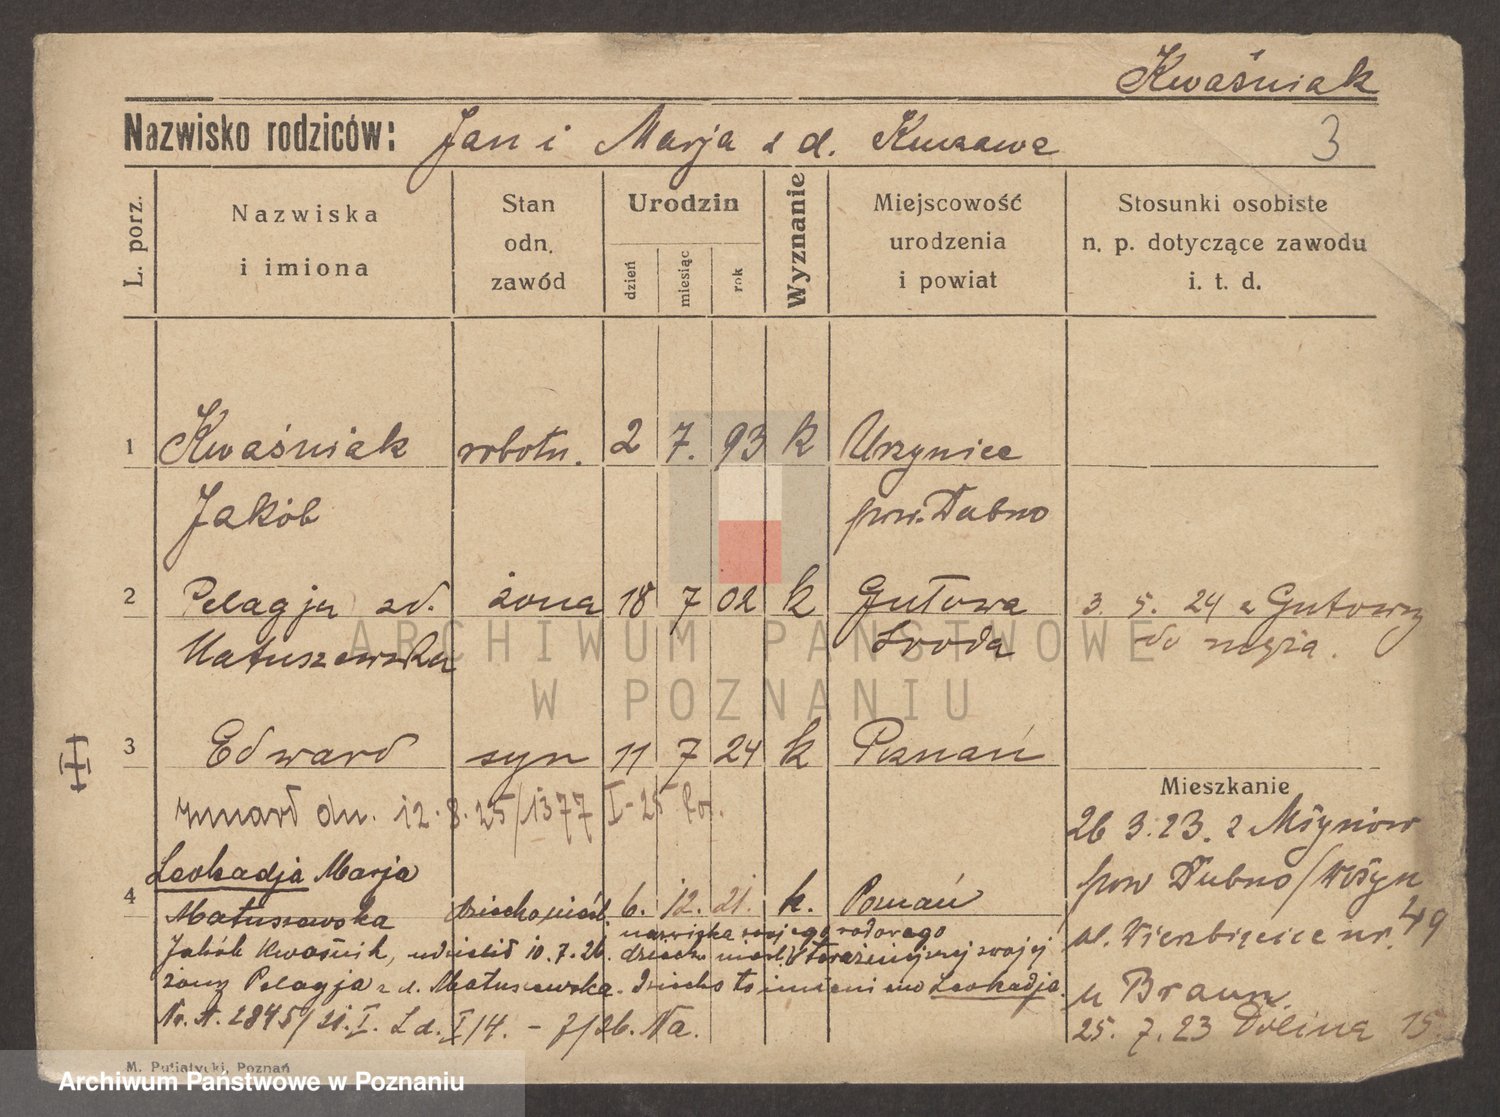 Kwaśniak
Nazwisko rodziców: Jan i Marja z d. Kurzawa
3
L. porz.
Nazwiska
i imiona
Stan
odn.
zawód
Urodzin
dzień
miesiąc
rok
Wyznanie
Miejscowość
urodzenia
i powiat
Stosunki osobiste
n. p. dotyczące zawodu
i. t. d.
1 Kwaśniak robotn. 2 7. 93 k
Jakób pow. Dubno
2 Pelagja zd. żona 18 7 02 k Gułowa 3. 5. 24 z Gutowy
Matuszewska Środa do męża.
ARCHIWUM PAŃSTWOWE
W POZNANIU
3 Edward syn 11 7 24 k Poznań
zmarł dn. 12.8.25/1377 I-25
Mieszkanie
26 3. 23. z Młynów
pow Dubno/Wołyń
ul. Wierzbięcice nr. 49
u Braun.
25. 7. 23 Dolina 15
Leokadja Marja
4 Matuszewska 6. 12. 21. k. Poznań
nazwiska swojego rodowego
Jakób Kwaśnik, udzielił 10.7.26. dziecku nieśl. swojej
żony Pelagja z d. Matuszewska. Dziecko to imieniem Leokadja.
Nr. A. 2845/21. I. Ld. I/4. - 7/26. Na.
M. Putiatycki, Poznań
Archiwum Państwowe w Poznaniu